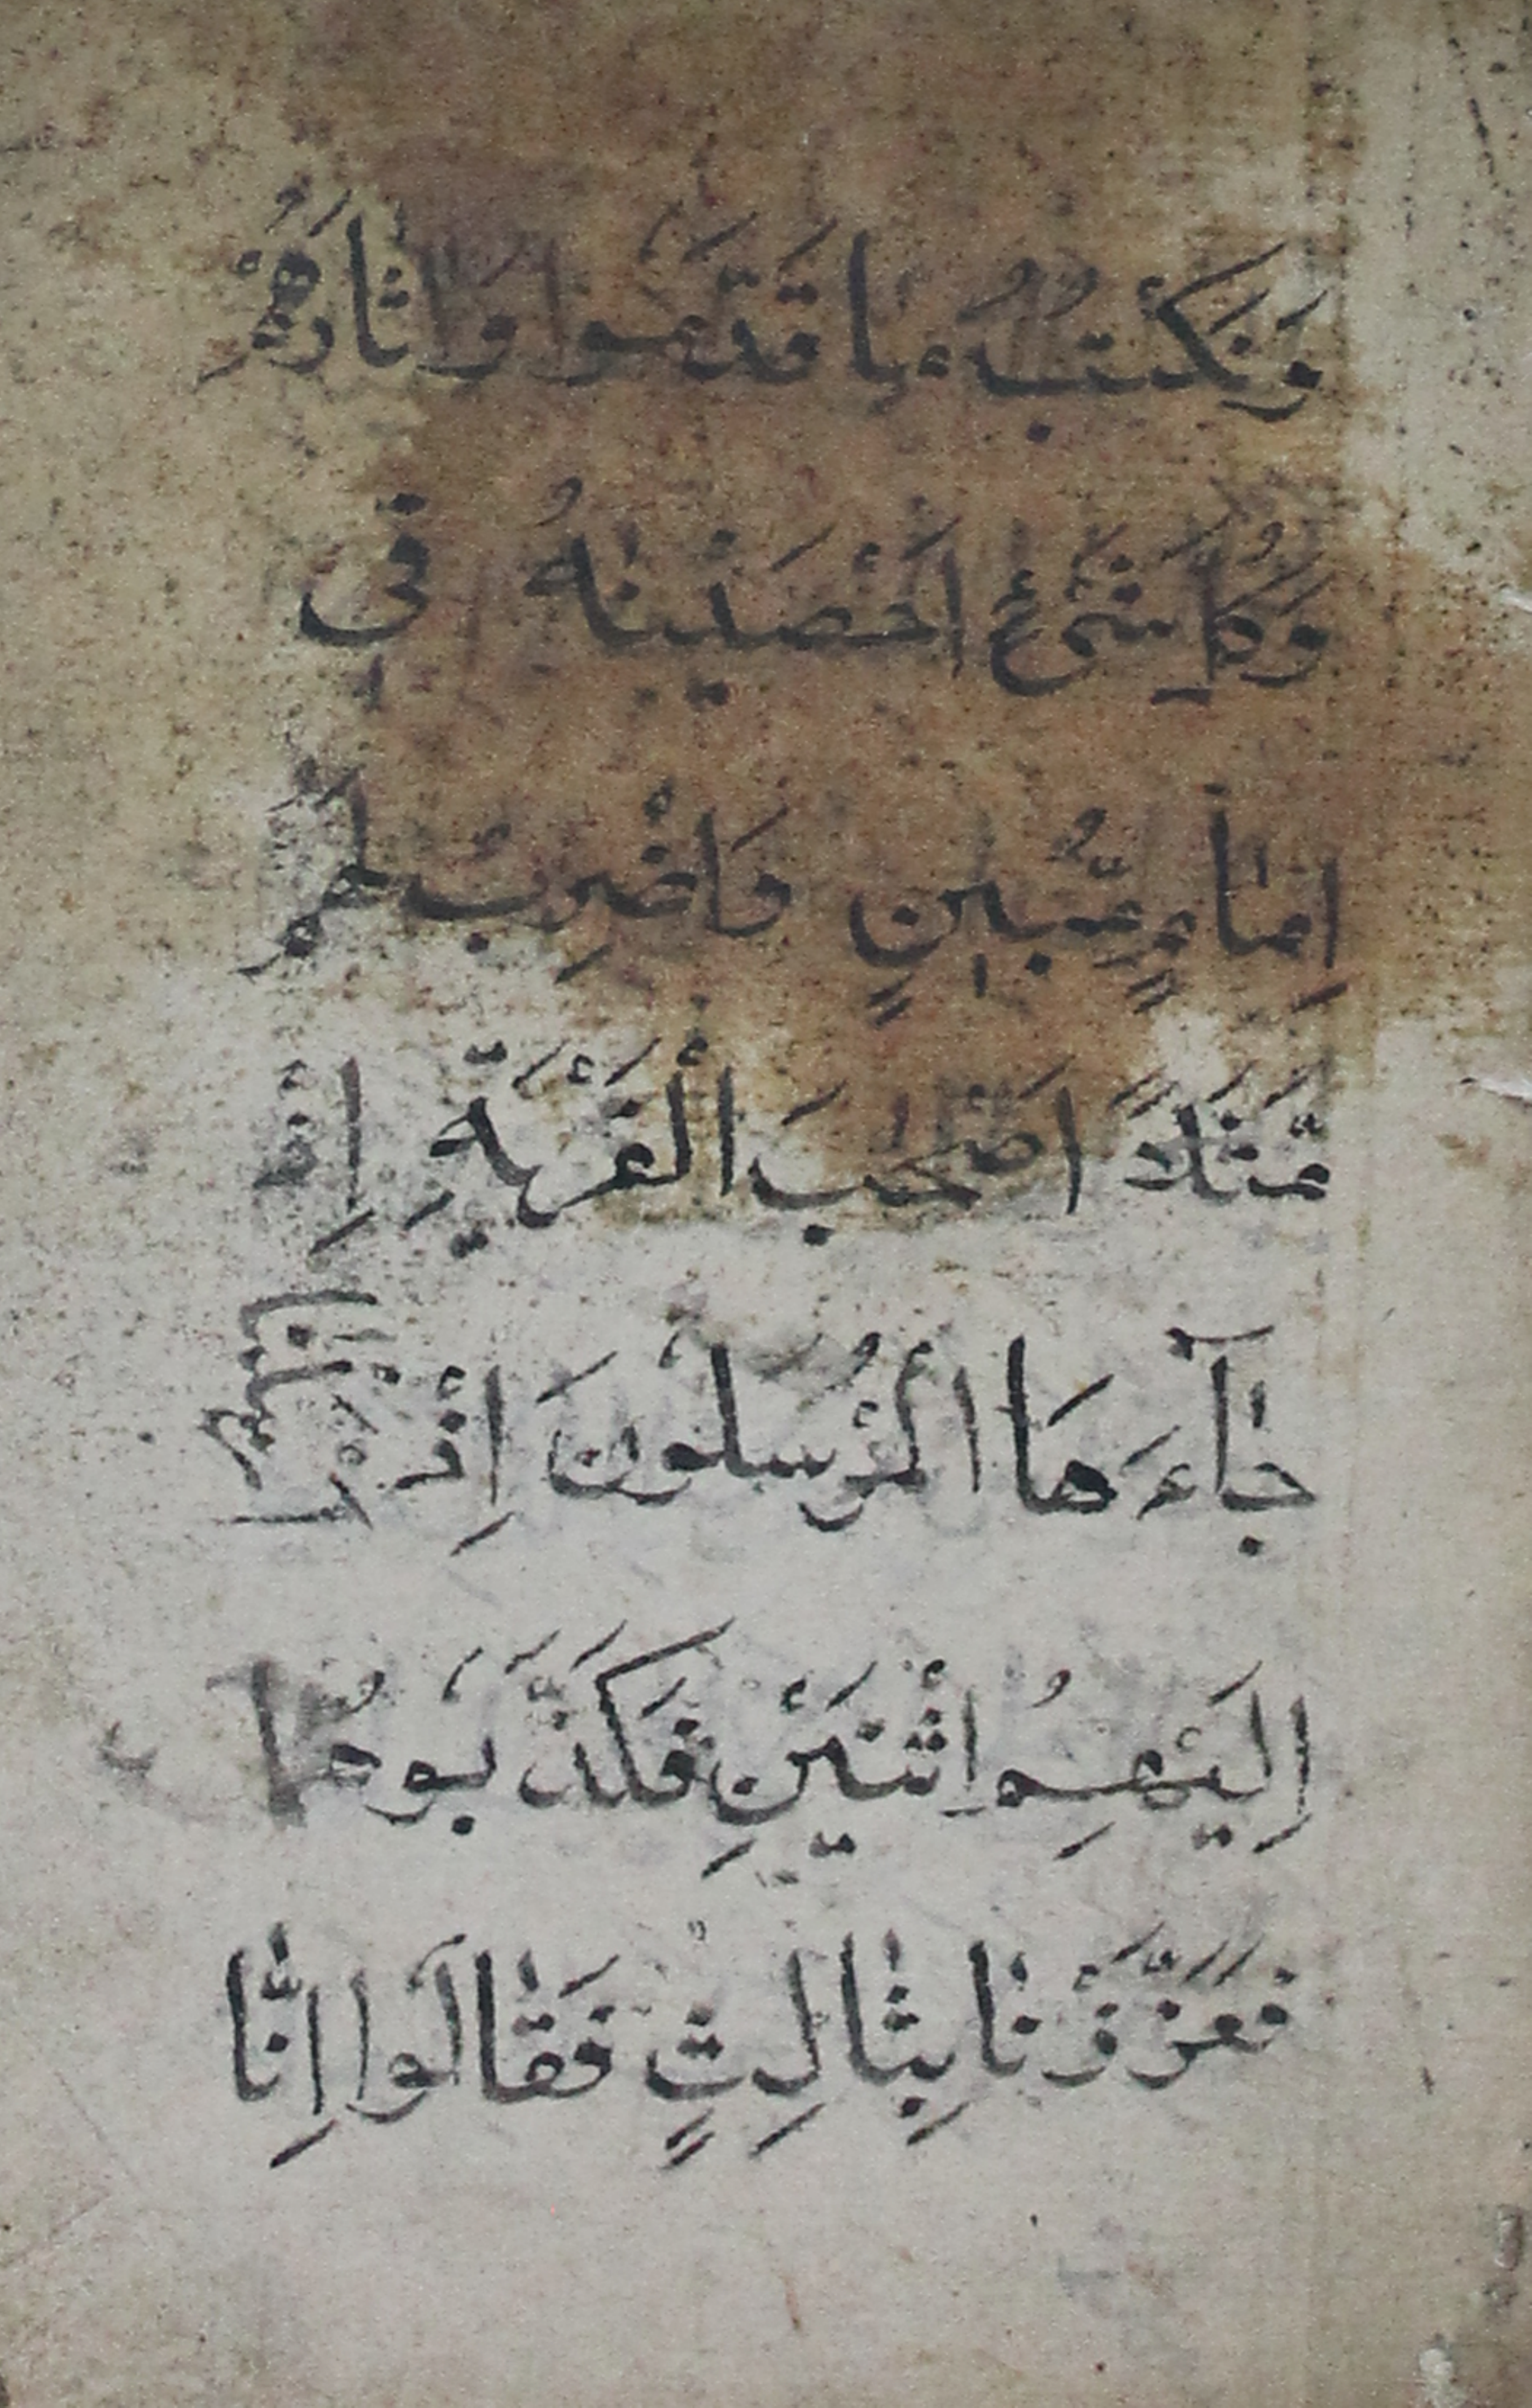 وَنَكْتُبُ مَا قَدَّمُوا وَاٰثَارَهُمْ
وَكُلَّ شَیْءٍ اَحْصَیْنٰهُ فٖی
اِمَامٍ مُّبٖینٍ وَاضْرِبْ لَهُمْ
مَّثَلًا اَصْحٰبَ الْقَرْیَةِ اِذْ
جَٓاءَهَا الْمُرْسَلُونَ اِذْ اَرْسَلْنَٓا
اِلَیْهِمُ اثْنَیْنِ فَكَذَّبُوهُمَا
فَعَزَّزْنَا بِثَالِثٍ فَقَالُوا اِنَّا